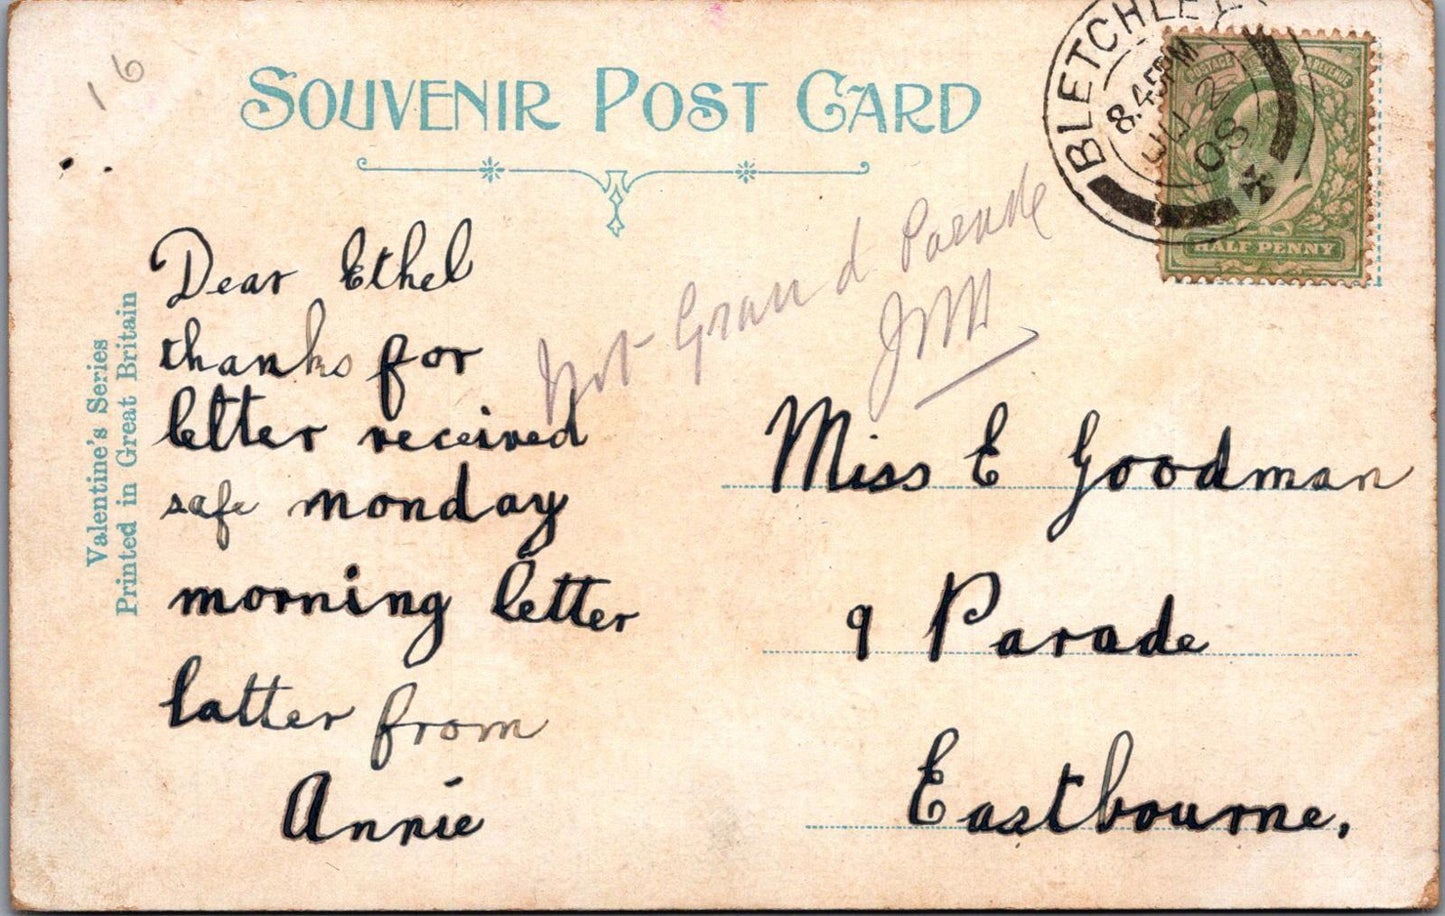 16
SOUVENIR POST CARD
BLETCHLEY
8.45PM
08
POSTAGE
REVENUE
HALF PENNY
Not Grand Parade
Valentine's Series
Printed in Great Britain
Dear Ethel
thanks for
letter received
safe monday
morning letter
latter from
Annie
Miss E Goodman
9 Parade
Eastbourne,